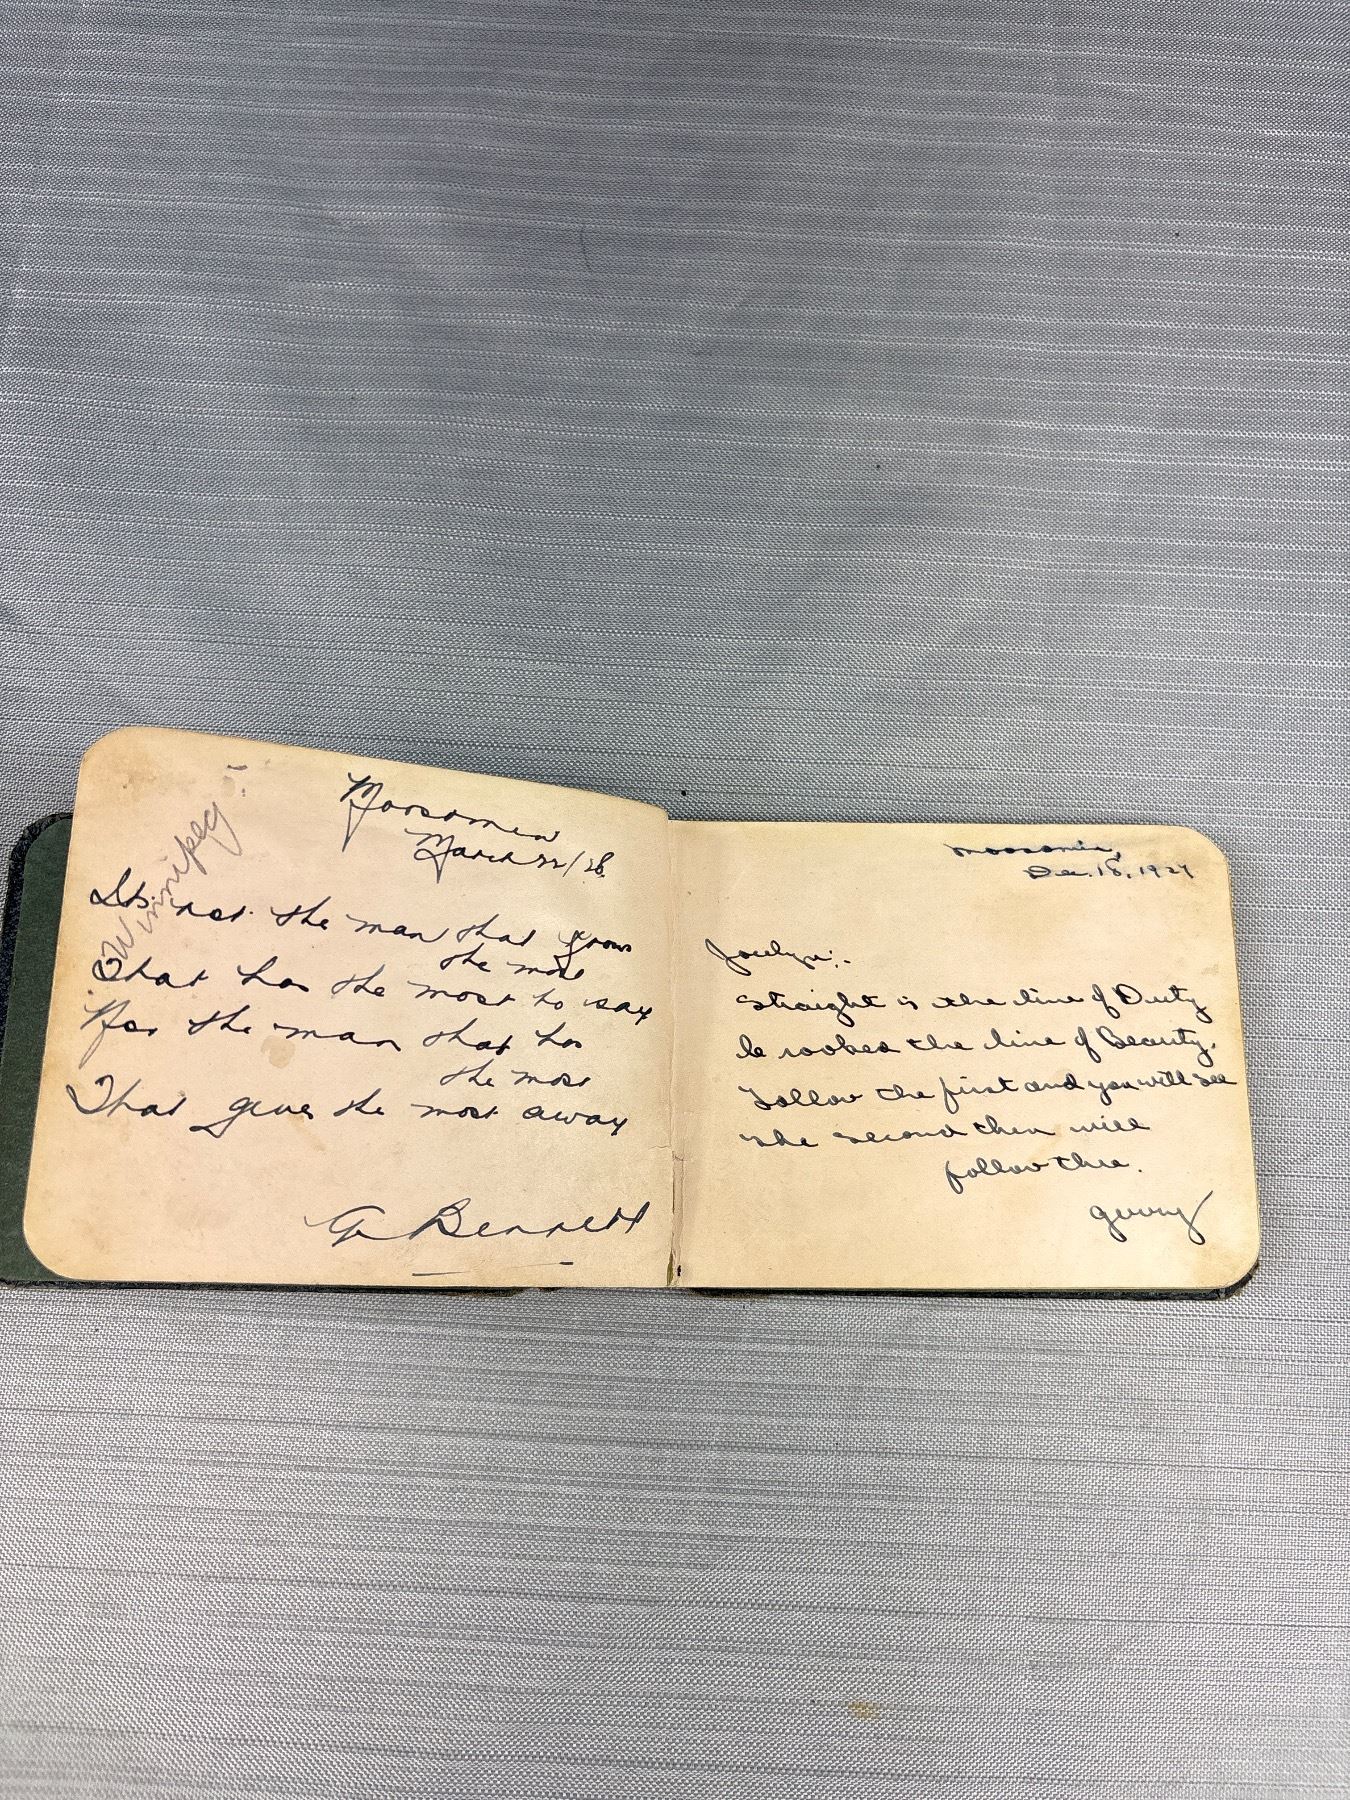 Winnipeg:-
Moosomin
March 22/28.
Its not the man that knows
the most
That has the most to say
Nor the man that has
the most
That gives the most away
G Bennett
Moosomin,
Dec. 18, 1927
Jocelyn:-
Straight is the line of Duty
be rooked the line of Beauty.
Follow the first and you will see
The second then will
follow thee.
Gerry